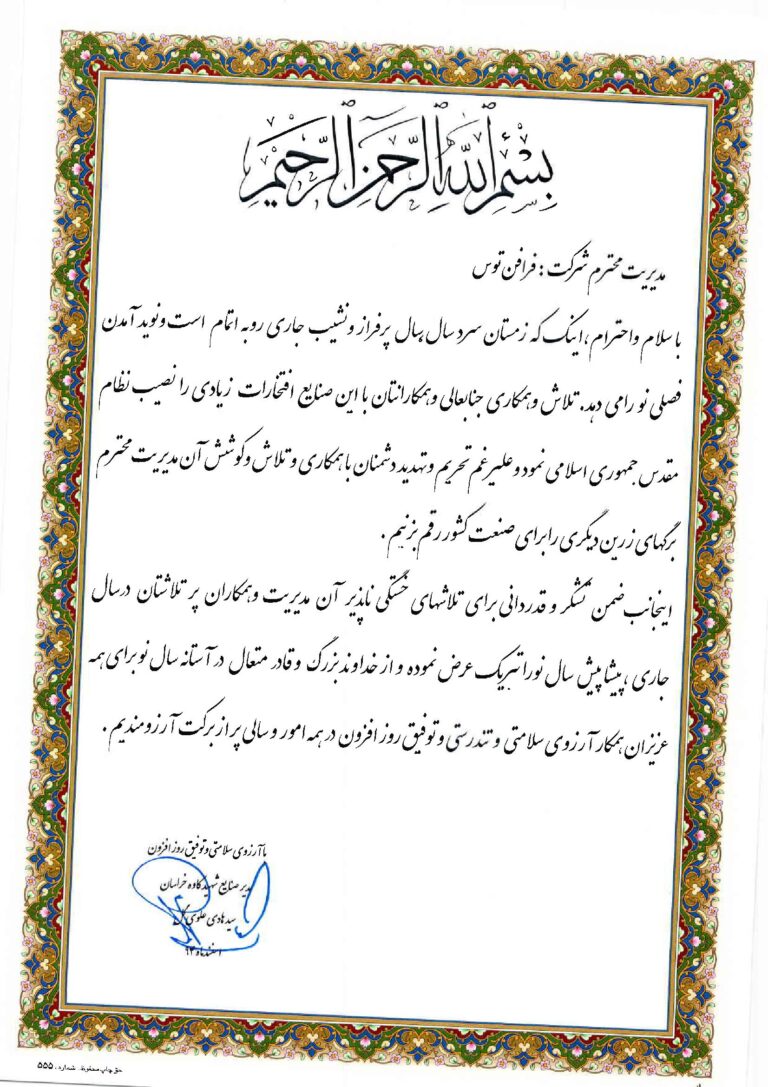 بسم الله الرحمن الرحیم
مدیریت محترم شرکت : فرافن توس
با سلام و احترام ، اینک که زمستان سرد سال پر فراز و نشیب جاری رو به اتمام است و نوید آمدن
فصلی نو را می دهد. تلاش و همکاری جنابعالی و همکارانتان با این صنایع افتخارات زیادی را نصیب نظام
مقدس جمهوری اسلامی نمود و علیرغم تحریم و تهدید دشمنان با همکاری و تلاش و کوشش آن مدیریت محترم
برگهای زرین دیگری را برای صنعت کشور رقم بزنیم .
اینجانب ضمن تشکر و قدردانی برای تلاشهای خستگی ناپذیر آن مدیریت و همکاران پر تلاشتان در سال
جاری ، پیشاپیش سال نو را تبریک عرض نموده و از خداوند بزرگ و قادر متعال در آستانه سال نو برای همه
عزیزان همکار آرزوی سلامتی و تندرستی و توفیق روز افزون در همه امور و سالی پر از برکت آرزومندیم .
با آرزوی سلامتی و توفیق روز افزون
مدیر صنایع شهید کاوه خراسان
سید هادی علوی
اسفندماه ۹۳
حق چاپ محفوظ - شماره ۵۵۵